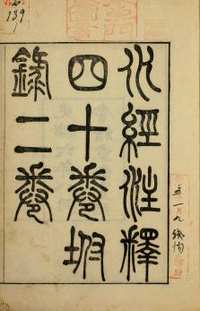 水經注釋
四十卷坿
錄二卷
139
五一九